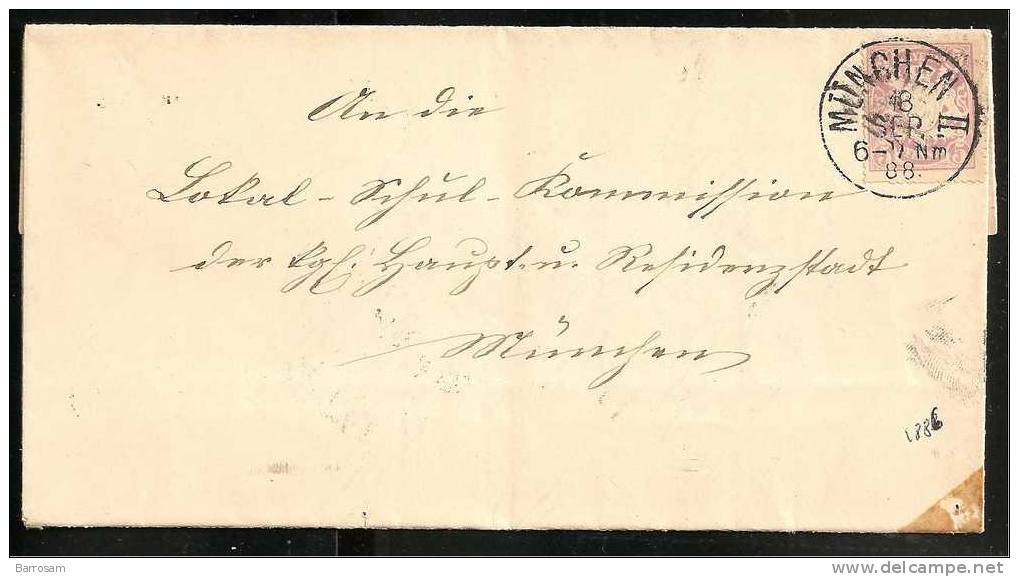 An die
Lokal-Schul-Kommission
der kgl. Haupt- u. Residenzstadt
München
MÜNCHEN II.
18
SEP.
6-7. Nm
88.
1886
Barrosam
www.delcampe.net